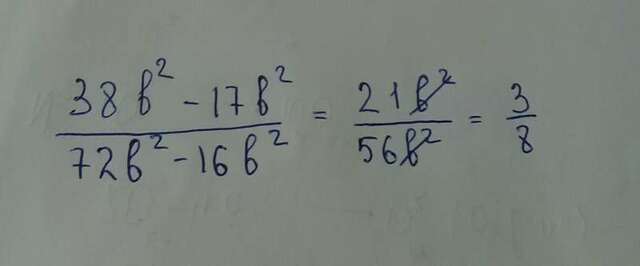 38b² - 17b² / 72b² - 16b² = 21b² / 56b² = 3/8